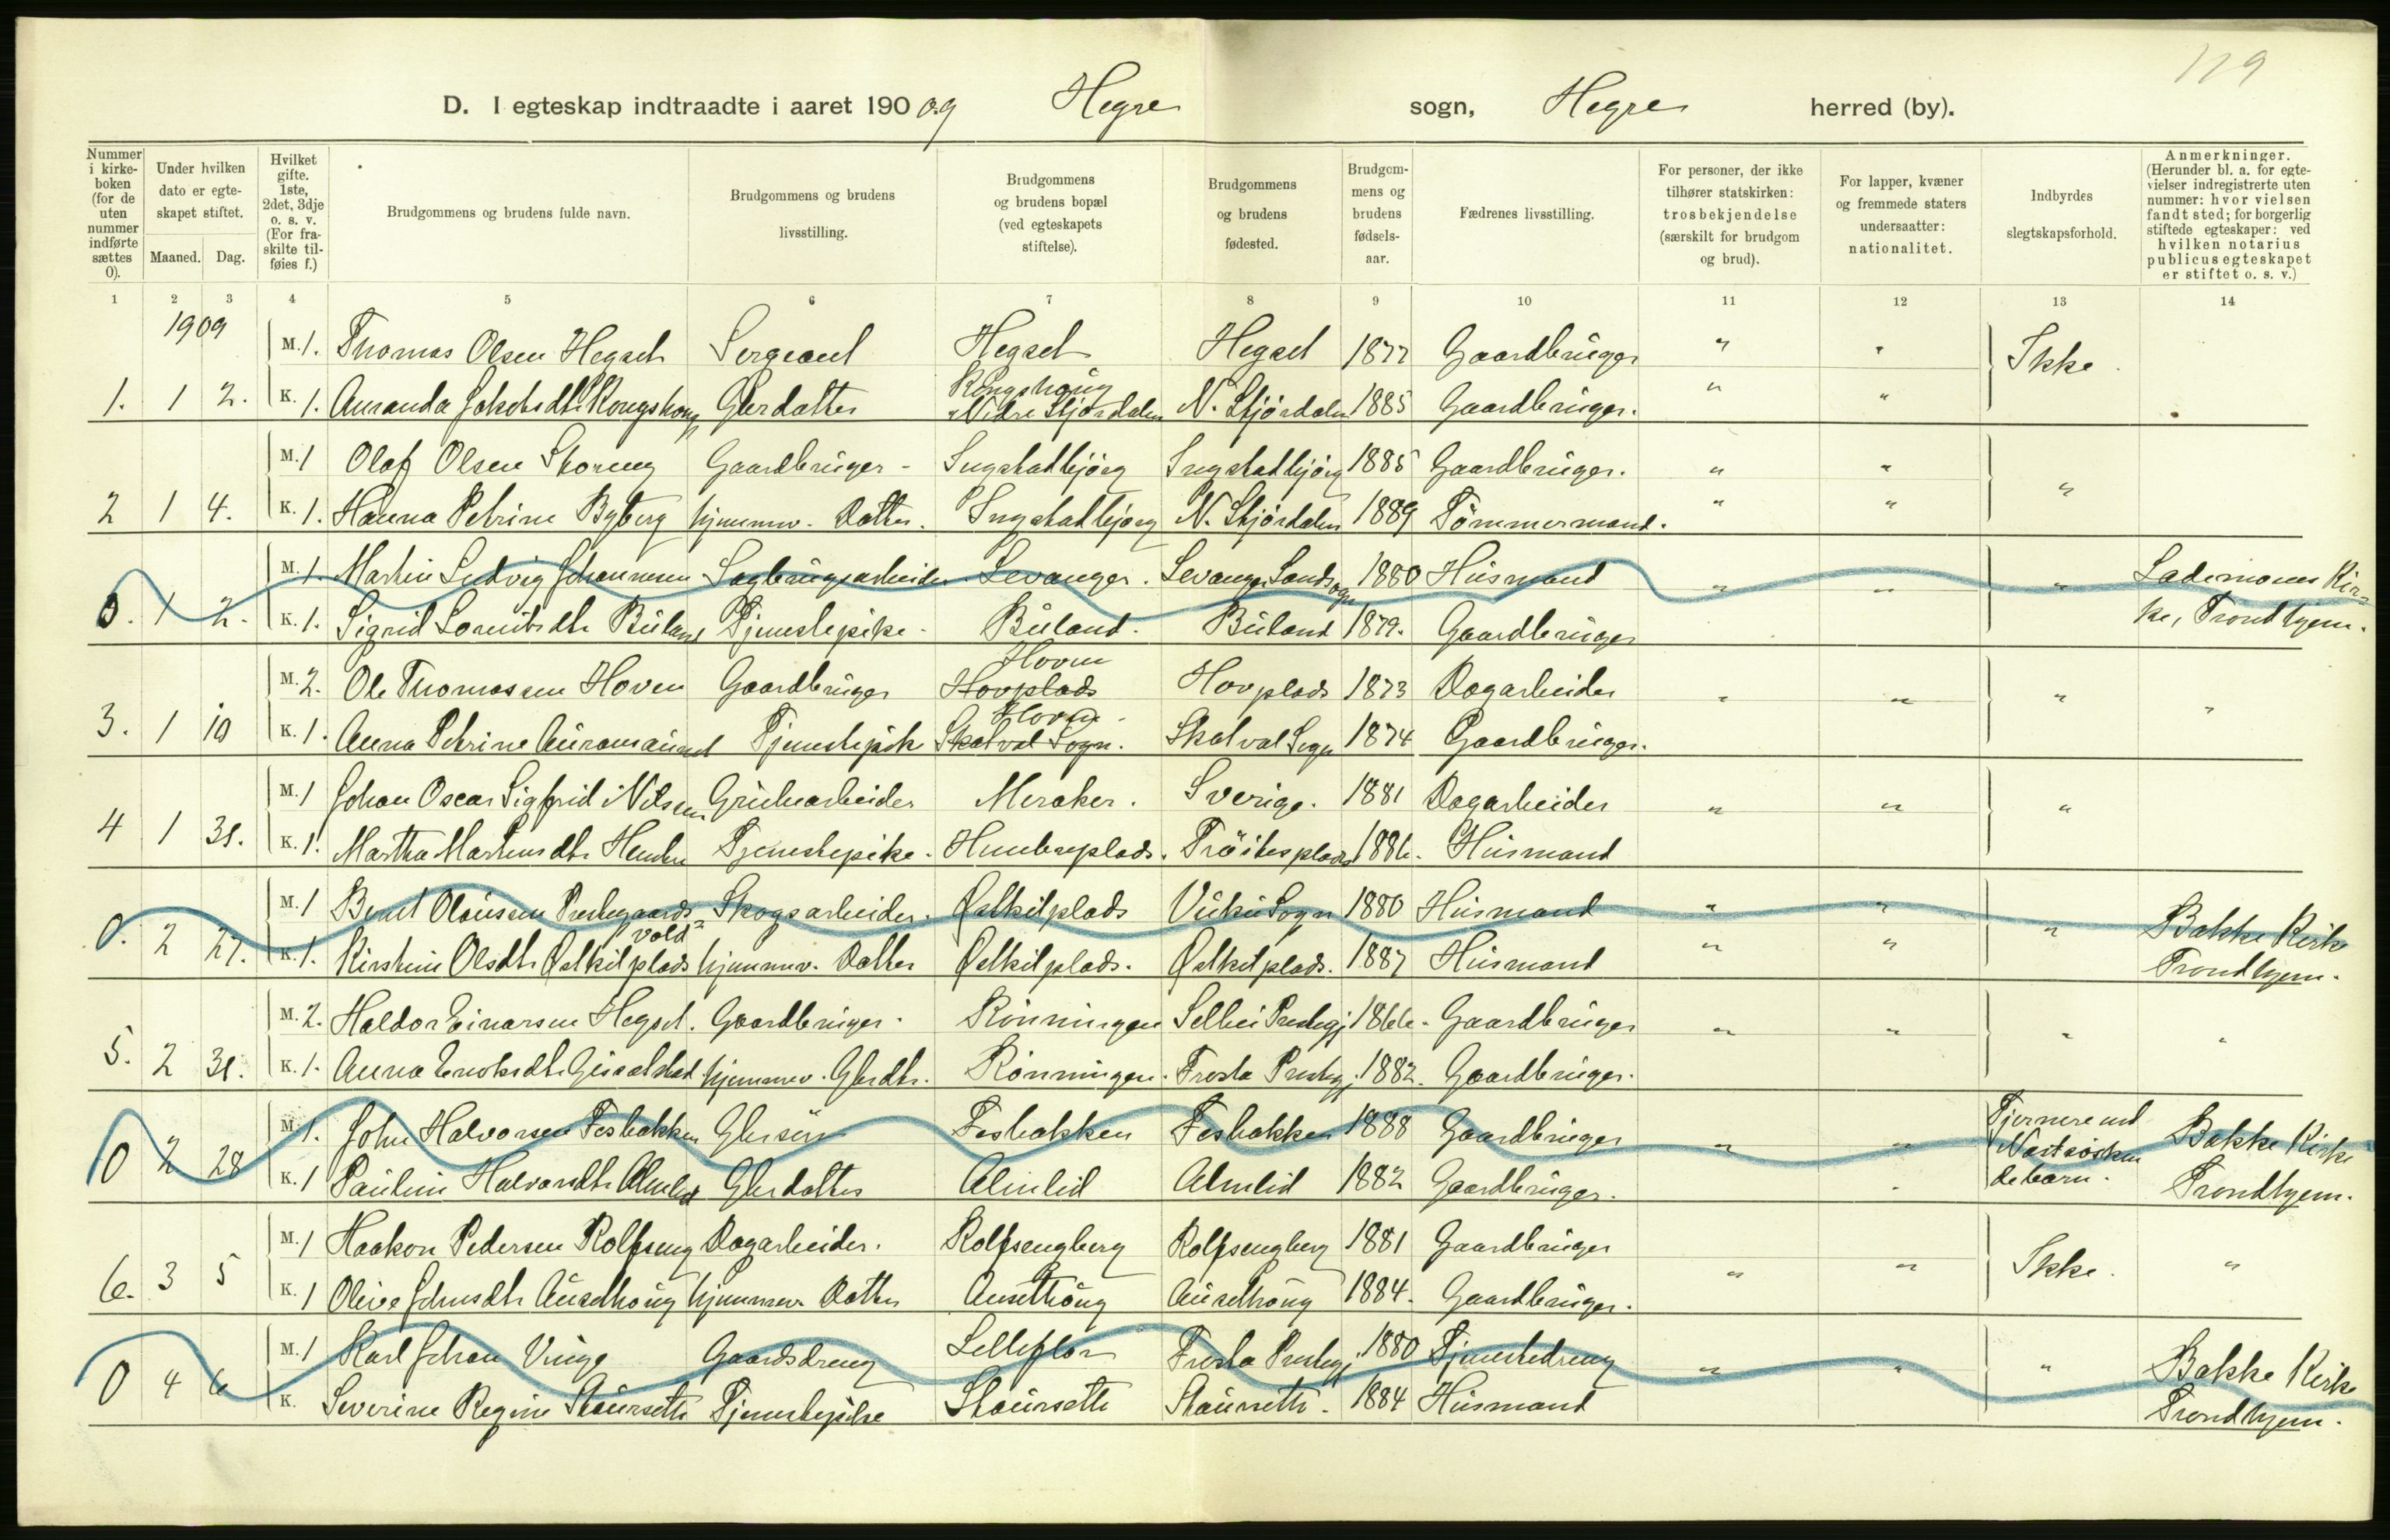 119
D. I egteskap indtraadte i aaret 190 09 Hegre sogn, Hegre herred (by).
Nummer i kirke-boken (for de uten nummer indførte sættes 0).
Under hvilken dato er egte-skapet stiftet.
Maaned. Dag.
Hvilket gifte. 1ste, 2det, 3dje o. s. v. (For fra-skilte til-føies f.)
Brudgommens og brudens fulde navn.
Brudgommens og brudens livsstilling.
Brudgommens og brudens bopæl (ved egteskapets stiftelse).
Brudgommens og brudens fødested.
Brudgom-mens og brudens fødsels-aar.
Fædrenes livsstilling.
For personer, der ikke tilhører statskirken: trosbekjendelse (særskilt for brudgom og brud).
For lapper, kvæner og fremmede staters undersaatter: nationalitet.
Indbyrdes slegtskapsforhold.
Anmerkninger. (Herunder bl. a. for egte-vielser indregistrerte uten nummer: hvor vielsen fandt sted; for borgerlig stiftede egteskaper: ved hvilken notarius publicus egteskapet er stiftet o. s. v.)
1 2 3 4 5 6 7 8 9 10 11 12 13 14
1909
M. 1. Thomas Olsen Hegset Sergeant Hegset Hegset 1877 Gaardbruger " " Ikke.
Kongshoug
1. 1 2. K. 1. Amanda Jakobsdtr Kongshoug Gbrdatter Nedre Stjørdalen N. Stjørdalen 1885 Gaardbruger. " "
M. 1 Olaf Olsen Skoreng Gaardbruger - Ingstadbjørg Ingstadbjørg 1885 Gaardbruger. " " "
2 1 4. K. 1. Hanna Petrine Byberg hjemmev. Datter. Ingstadbjørg N. Stjørdalen 1889 Tømmermand. " "
M. 1. Martin Ludvig Johannesen Sagbrugsarbeider Levanger. Levanger Landsogn 1880 Husmand " " " Lademoens Kir-
0. 1 2. K. 1. Sigrid Lorentsdtr Buland Tjenestepike - Buland. Buland 1879. Gaardbruger ke, Trondhjem.
Hoven
M. 2. Ole Thomassen Hoven Gaardbruger Hovplads Hovplads 1873 Dagarbeider " " " "
Hoven
3. 1 10 K. 1. Anna Petrine Auramaunet Tjenestepik Skatval Sogn. Skatval Sogn 1874 Gaardbruger.
M. 1 Johan Oscar Sigfrid Nilsen Grubearbeider Meraker. Sverige. 1881 Dagarbeider " " "
4 1 31. K. 1. Martha Martinsdtr Hembre Tjenestepike. Hembreplads. Trøitesplads 1886. Husmand
M. 1 Bernt Olaussen Prestegaards- Skogsarbeider. Østkilplads Vuku Sogn 1880 Husmand " " " Bakke Kirke
vold
0. 2 27. K. 1. Kirstine Olsdtr Østkilplads hjemmev. Datter Østkilplads. Østkilplads. 1887 Husmand " " Trondhjem.
M. 2. Haldor Einarsen Hegset. Gaardbruger. Rønningen Selbu Prestegj. 1866. Gaardbruger " " " "
5. 2 31. K. 1. Anna hjemmev. Gbrdtr. Rønningen. Frosta Prestegj. 1882. Gaardbruger.
M. 1. John Halvorsen Fosbakken Gbrsøn Fosbakken Fosbakken 1888 Gaardbruger " " Fjernere end Bakke Kirke
Næstsøsken
0 2 28 K. 1 Pauline Halvorsdtr Almlid Gbrdatter Almlid Almlid 1882 Gaardbruger. debarn. Trondhjem.
M. 1 Haakon Pedersen Rolfseng Dagarbeider. Rolfsengberg Rolfsengberg 1881 Gaardbruger " " Ikke. "
6. 3 5 K. 1 Olive Johnsdtr Ausethoug hjemmev. Datter Ausethoug Ausethoug 1884. Gaardbruger.
M. 1 Karl Johan Vinge Gaardsdreng Lilleflor Frosta Prestegj. 1880 Tjenestedreng " " " Bakke Kirke
0 4 6 K. Severine Regine Staursette Tjenestepike Staursette Staursette. 1884 Husmand Trondhjem.